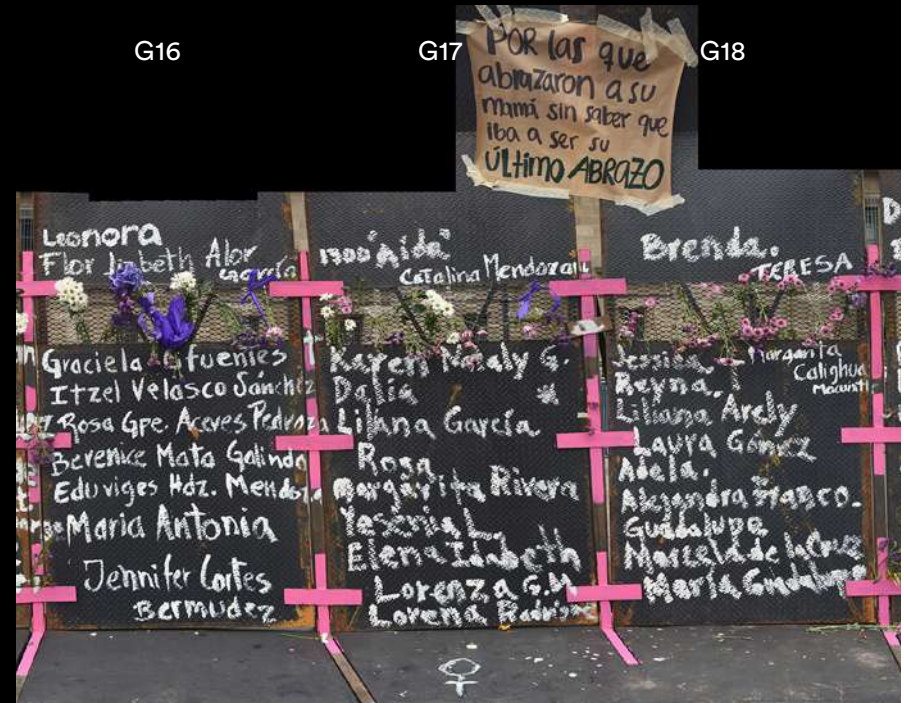 G16
G17
G18
POR las que
abrazaron a su
mamá sin saber que
iba a ser su
ÚLTIMO ABRAZO
Leonora
Flor Lizbeth Alor
García
Graciela Cifuentes
Itzel Velasco Sánchez
Rosa Gpe. Aceves Pedroza
Berenice Mata Galindo
Eduviges Hdz. Mendoza
Maria Antonia
Jennifer Cortes
Bermudez
"Aida"
Catalina Mendoza
Karen Nataly G.
Dalia
Liliana García
Rosa
Margarita Rivera
Yesenia L.
Elena Idabeth
Lorenza G.M.
Lorena
Brenda.
TERESA
Jessica
Margarita
Reyna.
Liliana Arely
Laura Gómez
Adela.
Alejandra Franco.
Guadalupe
Marcela de la Cruz
María Guadalupe